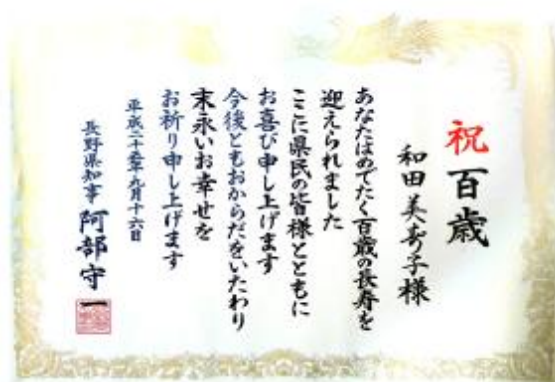 祝百歳
和田美寿子様
あなたはめでたく百歳の長寿を
迎えられました
ここに県民の皆様とともに
お喜び申し上げます
今後ともおからだをいたわり
末永いお幸せを
お祈り申し上げます
平成二十五年九月十六日
長野県知事 阿部守一